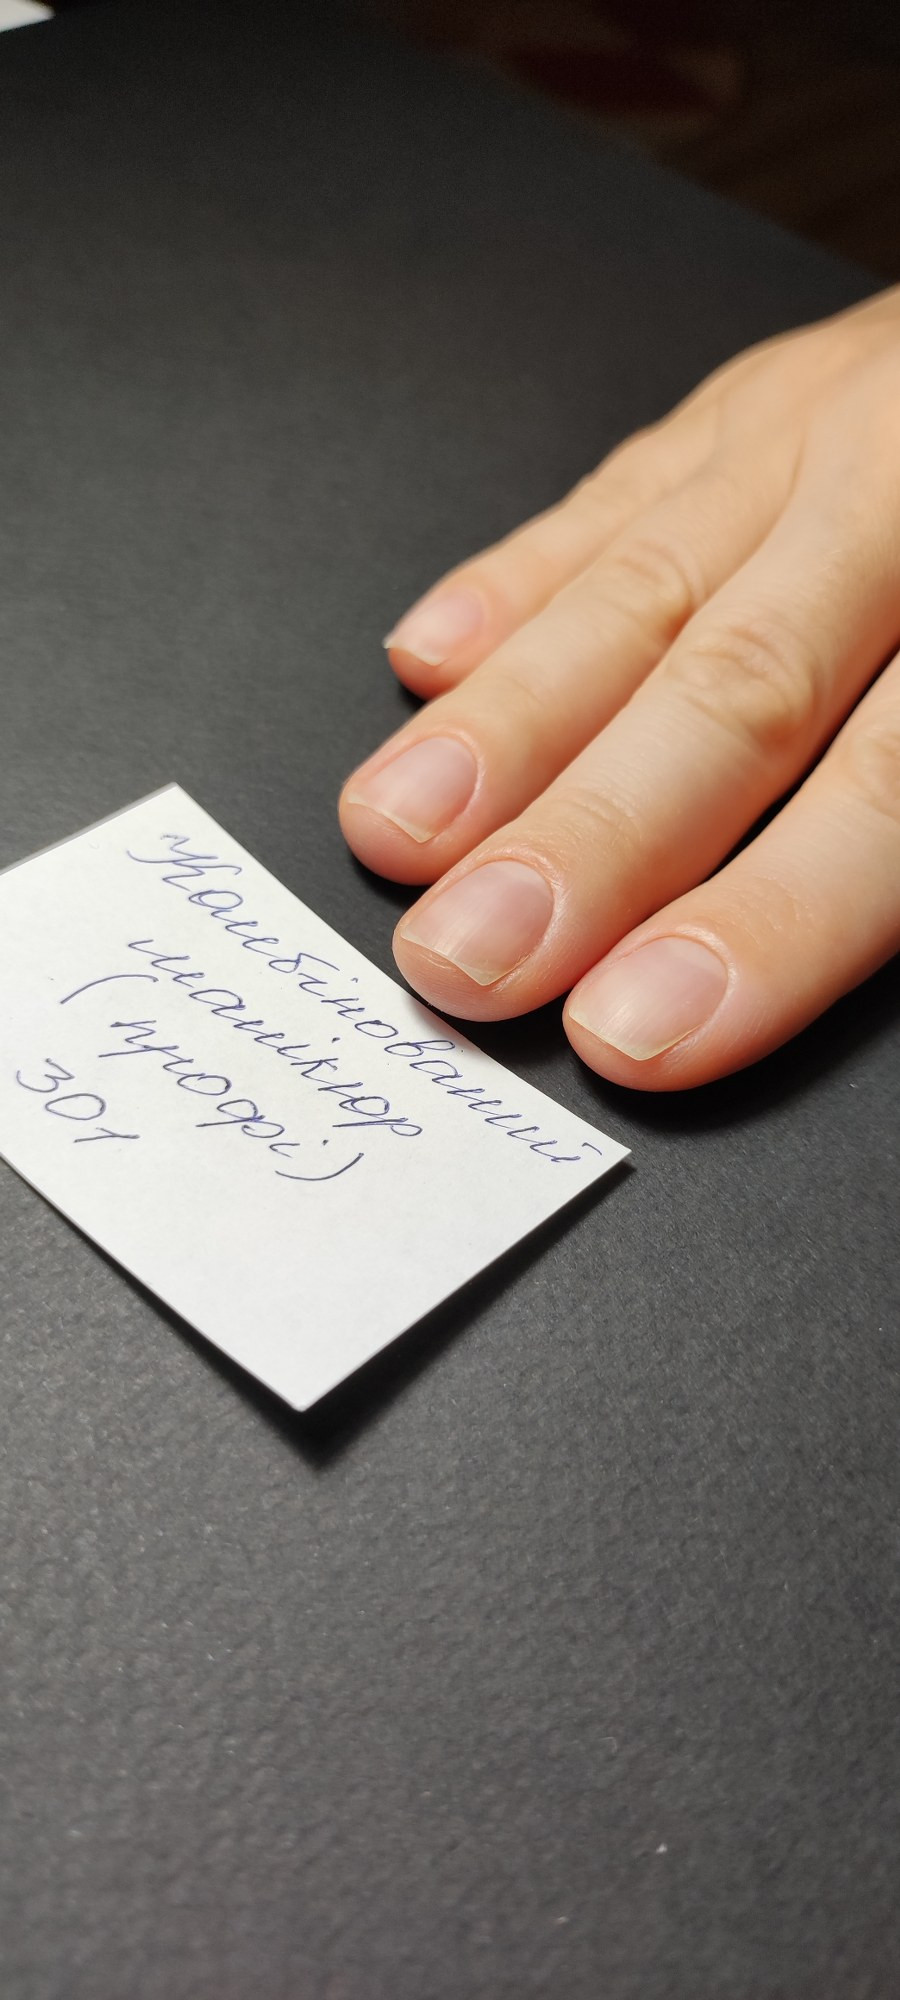 Комбінований
манікюр
(профі)
301